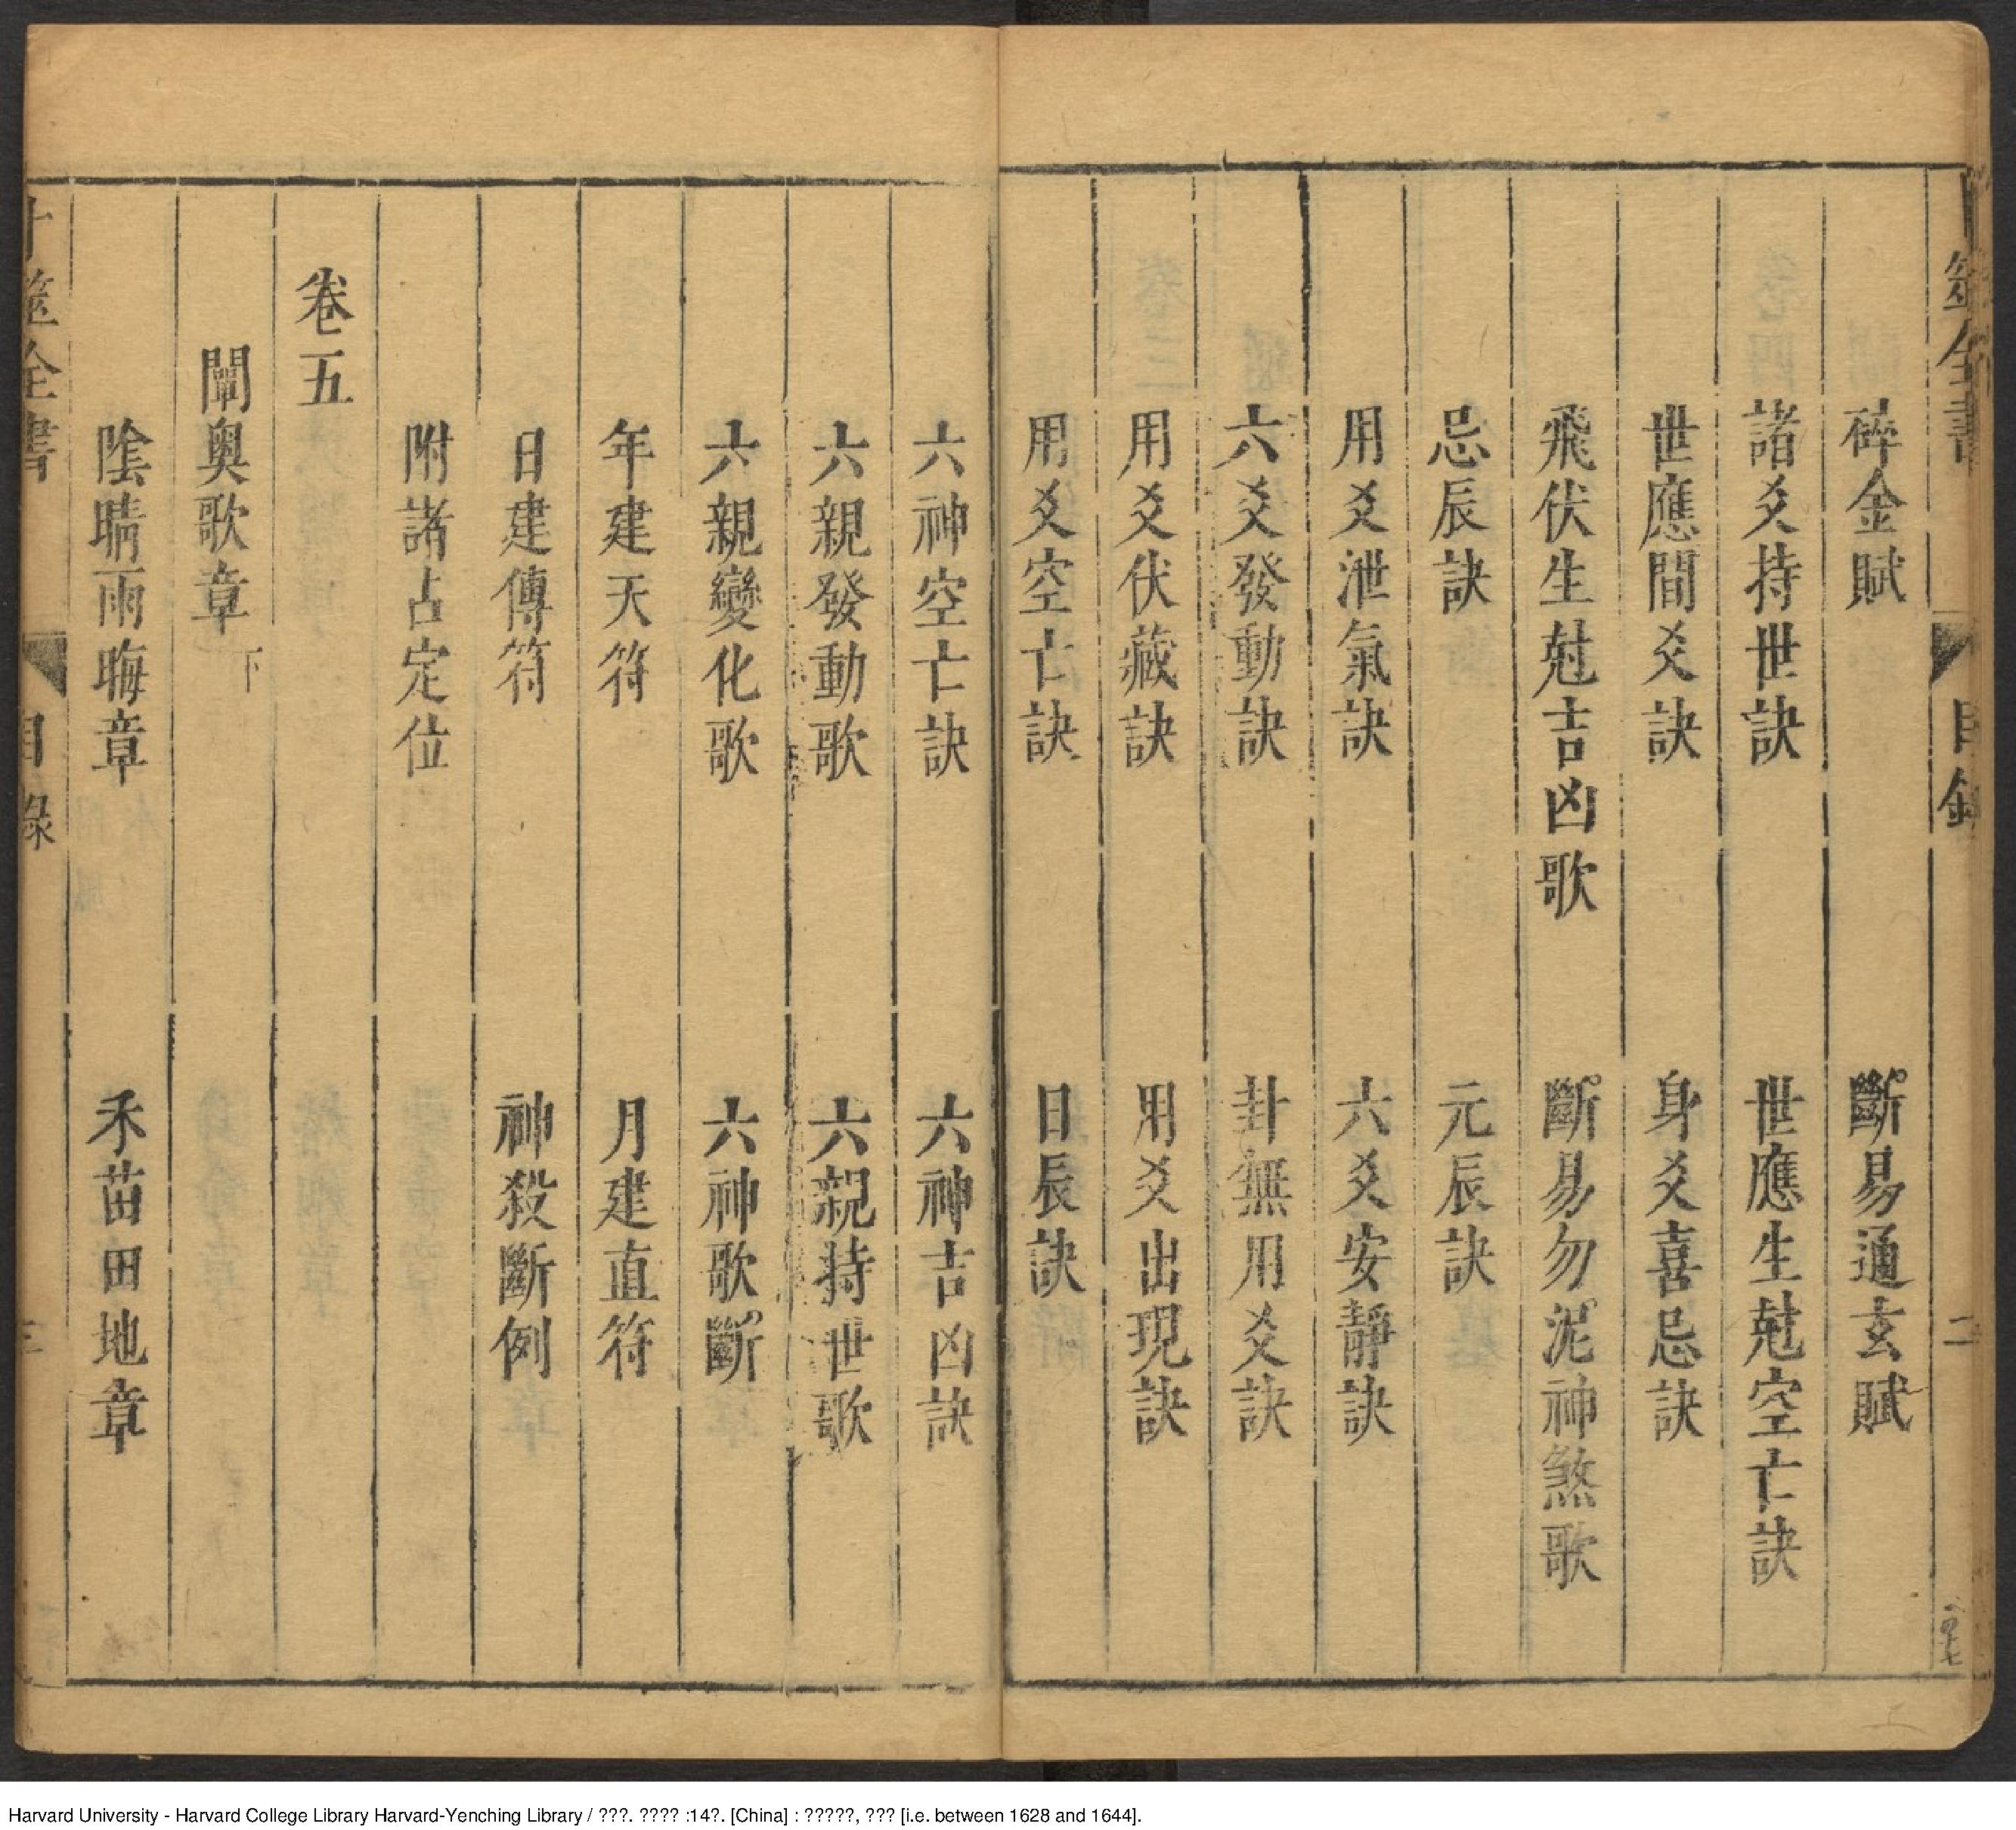 筮全書
目錄
二
碎金賦
斷易通玄賦
諸爻持世訣
世應生尅空亡訣
世應間爻訣
身爻喜忌訣
飛伏生尅吉凶歌
斷易勿泥神煞歌
忌辰訣
元辰訣
用爻泄氣訣
六爻安靜訣
六爻發動訣
卦無用爻訣
用爻伏藏訣
用爻出現訣
用爻空亡訣
日辰訣
六神空亡訣
六神吉凶訣
六親發動歌
六親持世歌
六親變化歌
六神歌斷
年建天符
月建直符
日建傳符
神殺斷例
附諸占定位
卷五
闡奧歌章下
陰晴雨晦章
禾苗田地章
卜筮全書
目錄
三
Harvard University - Harvard College Library Harvard-Yenching Library / ???. ???? :14?. [China] : ?????, ??? [i.e. between 1628 and 1644].